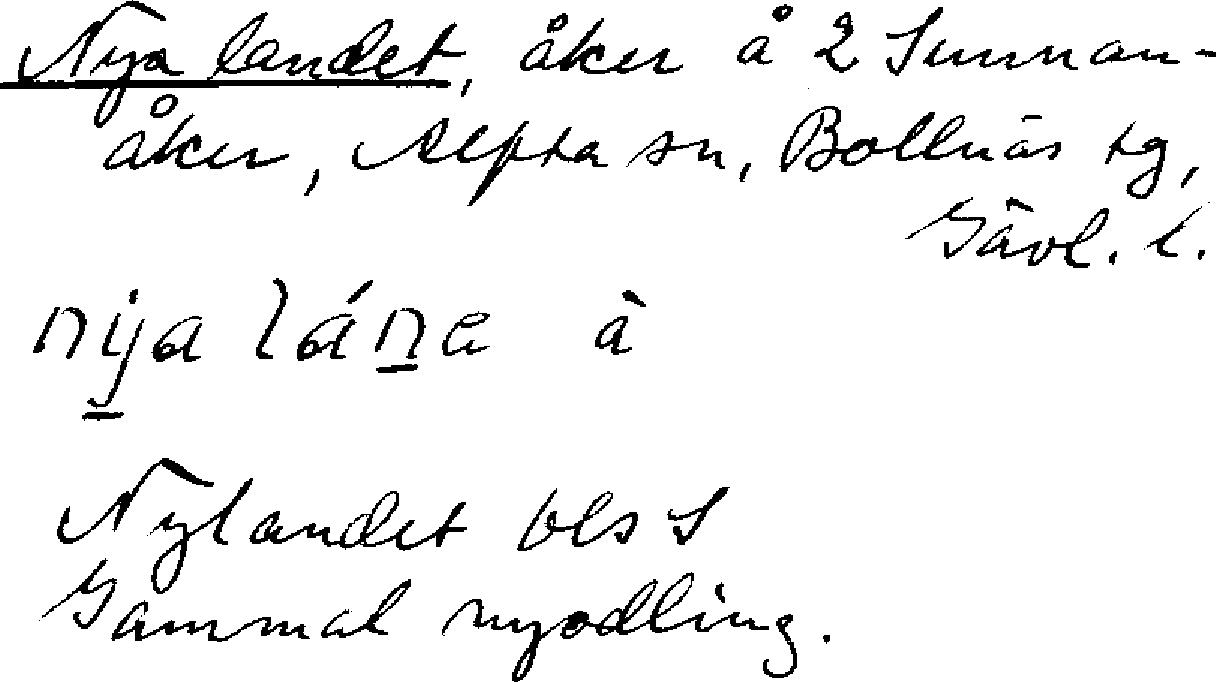 Nya landet, åker å 2 Sunnan-
åker, Alfta sn, Bollnäs tg,
Gävl. l.
nỳa lána à
Nylandet bls S
Gammal nyodling.